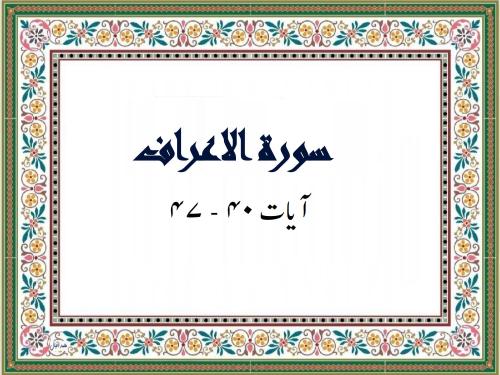 سورة الاعراف
آیات ۴۰ - ۴۷